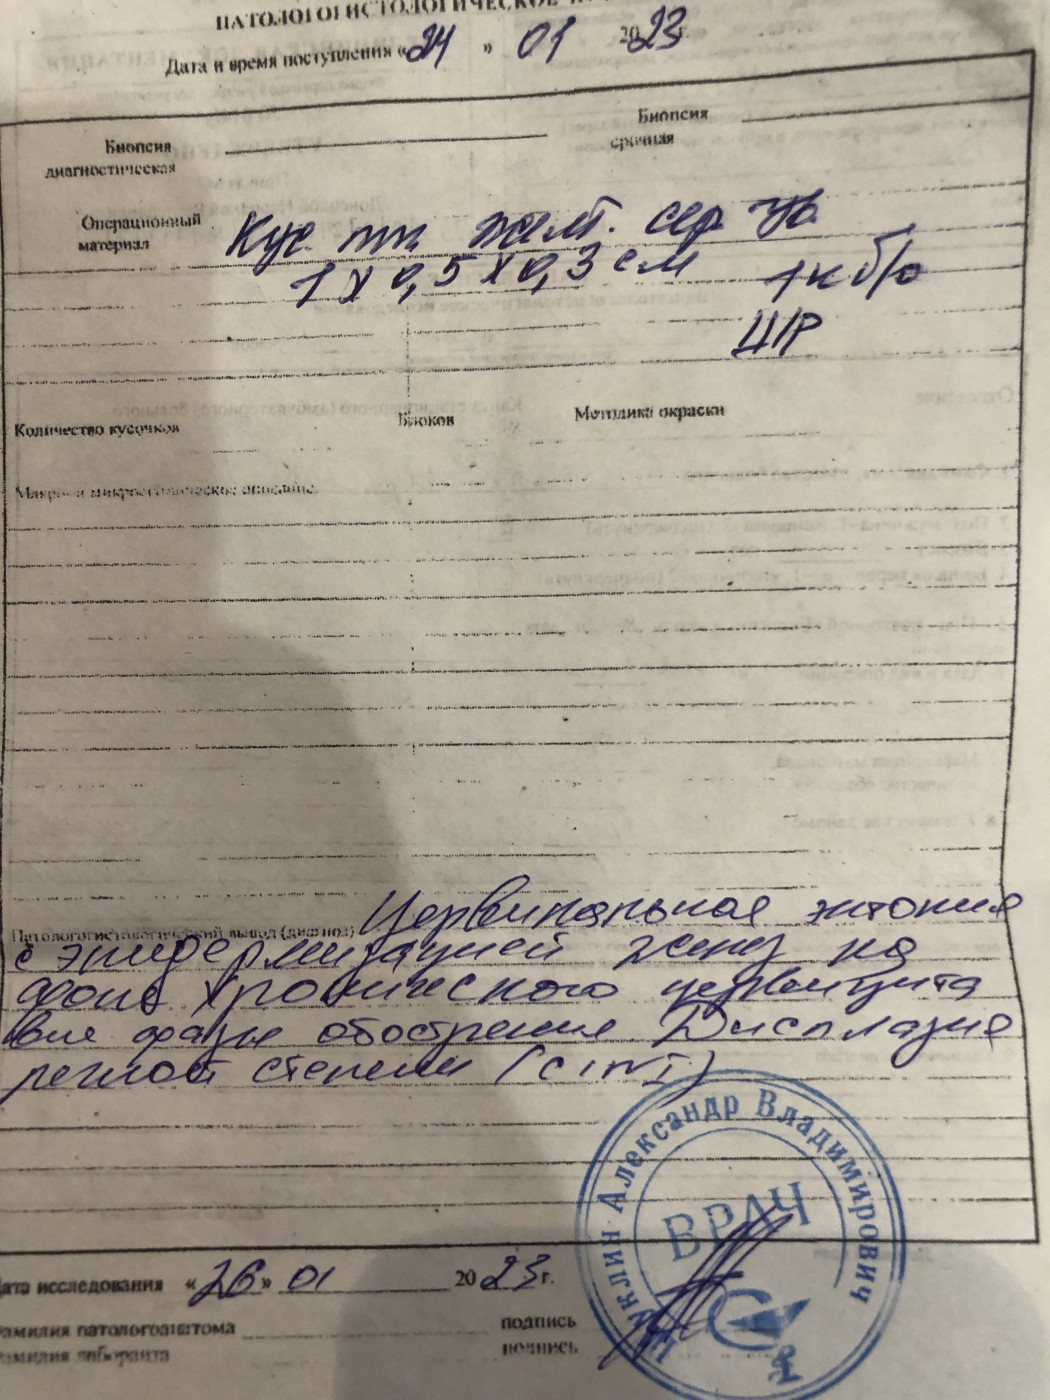 ПАТОЛОГОГИСТОЛОГИЧЕСКОЕ
Дата и время поступления «24» 01 2023 г.
Биопсия диагностическая
Биопсия срочная
Операционный материал
Кус тк желт. сер цв
1 х 0,5 х 0,3 см 1к б/о
Ц/Р
Количество кусочков Блоков Методика окраски
Макро- и микроскопическое описание
Патологогистологический вывод (диагноз) Цервикальная эктопия
с эпидермизацией желез на
фоне хронического цервицита
вне фазы обострения Дисплазия
легкой степени (CINI)
Александр Владимирович
ВРАЧ
Дата исследования «26» 01 2023 г.
Фамилия патологоанатома подпись
Фамилия лаборанта подпись